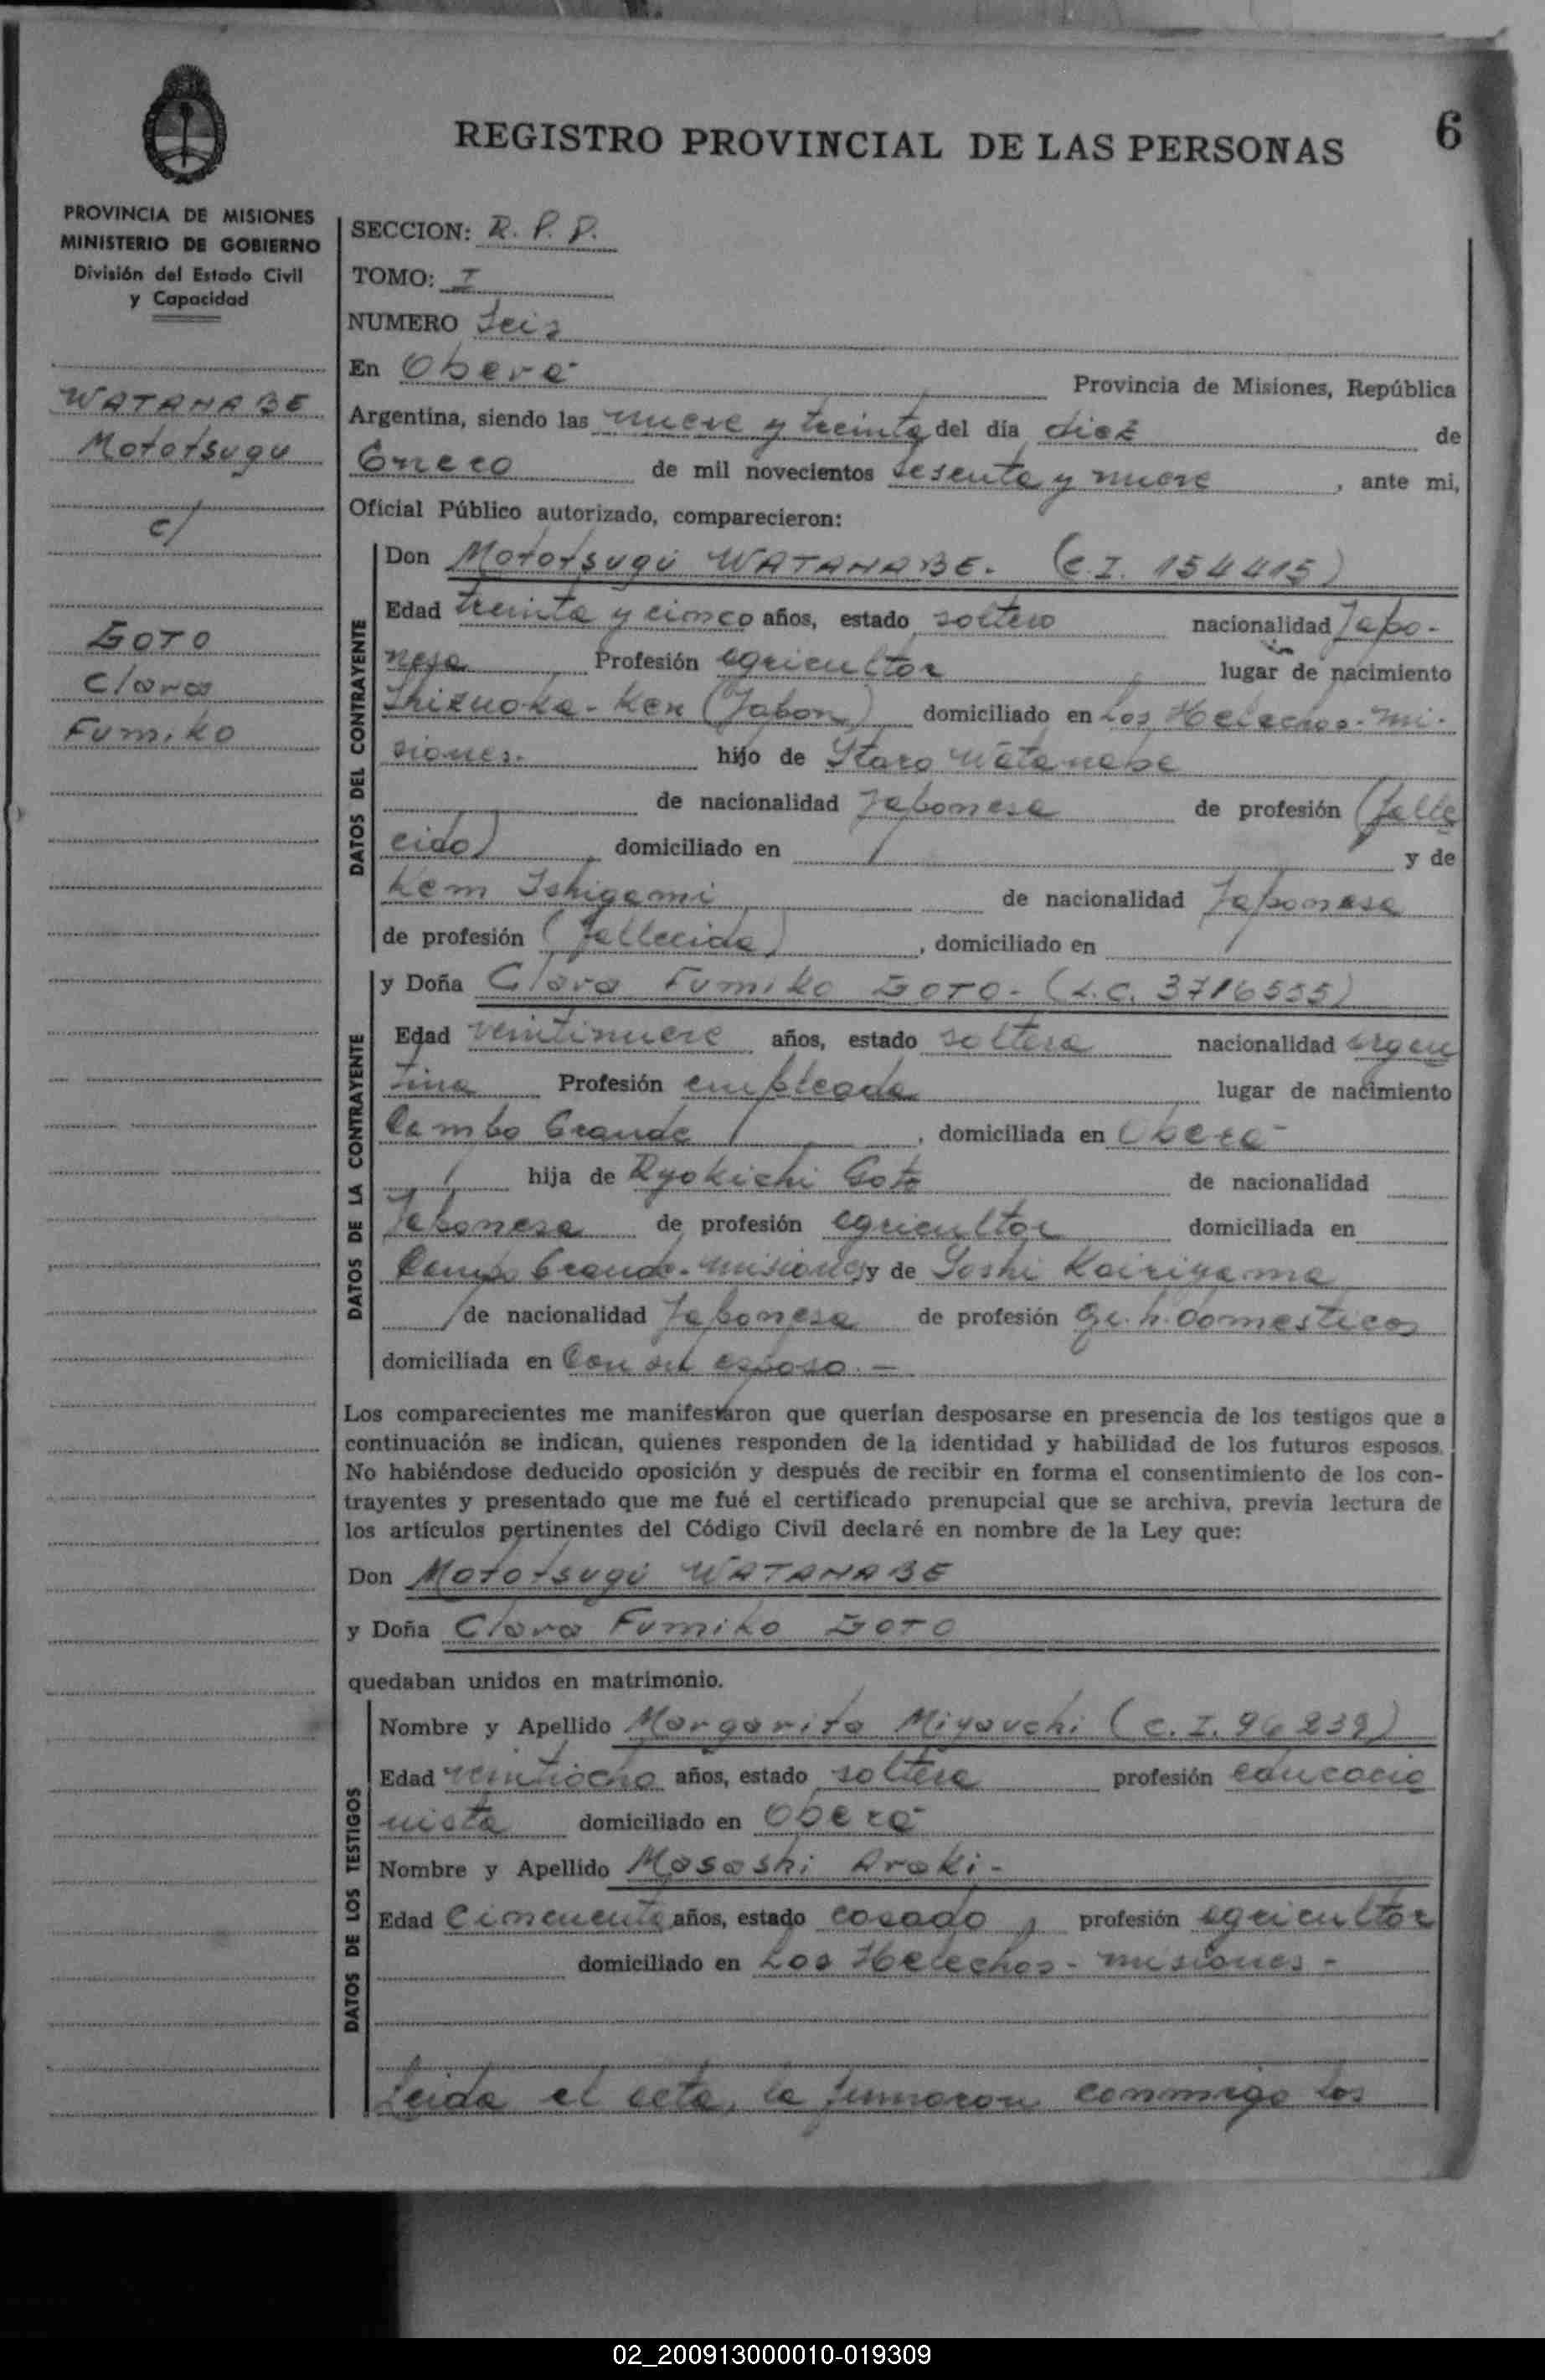 REGISTRO PROVINCIAL DE LAS PERSONAS
6
PROVINCIA DE MISIONES
MINISTERIO DE GOBIERNO
División del Estado Civil
y Capacidad
WATANABE
Mototsugu
c/
GOTO
Clara
Fumiko
SECCION: R. P. P.
TOMO: I
NUMERO Seis
En Oberá Provincia de Misiones, República
Argentina, siendo las nueve y treinta del día diez de
Enero de mil novecientos sesenta y nueve, ante mi,
Oficial Público autorizado, comparecieron:
DATOS DEL CONTRAYENTE
Don Mototsugu WATANABE. (C.I. 154415)
Edad treinta y cinco años, estado soltero nacionalidad Japo-
nesa Profesión agricultor lugar de nacimiento
Shizuoka-Ken (Japon) domiciliado en Los Helechos-Mi-
siones. hijo de Itaro Watanabe
de nacionalidad Japonesa de profesión (falle
cido) domiciliado en / y de
Kem Ishigami de nacionalidad Japonesa
de profesión (fallecida), domiciliado en /
DATOS DE LA CONTRAYENTE
y Doña Clara Fumiko GOTO- (L.C. 3716555)
Edad veintinueve años, estado soltera nacionalidad argen
tina Profesión empleada lugar de nacimiento
Campo Grande, domiciliada en Oberá
/ hija de Ryokichi Goto de nacionalidad
Japonesa de profesión agricultor domiciliada en
Campo Grande-Misiones y de Yoshi Kairiyama
/ de nacionalidad Japonesa de profesión q. h. domesticos
domiciliada en Con su esposo.—
Los comparecientes me manifestaron que querían desposarse en presencia de los testigos que a
continuación se indican, quienes responden de la identidad y habilidad de los futuros esposos.
No habiéndose deducido oposición y después de recibir en forma el consentimiento de los con-
trayentes y presentado que me fué el certificado prenupcial que se archiva, previa lectura de
los artículos pertinentes del Código Civil declaré en nombre de la Ley que:
Don Mototsugu WATANABE
y Doña Clara Fumiko GOTO
quedaban unidos en matrimonio.
DATOS DE LOS TESTIGOS
Nombre y Apellido Margarita Miyauchi (C.I. 96239)
Edad veintiocho años, estado soltera profesión educacio
nista domiciliado en Oberá
Nombre y Apellido Masashi Araki-
Edad Cincuenta años, estado casado, profesión agricultor
domiciliado en Los Helechos- Misiones-
Leida el acta, la firmaron conmigo los
02_200913000010-019309